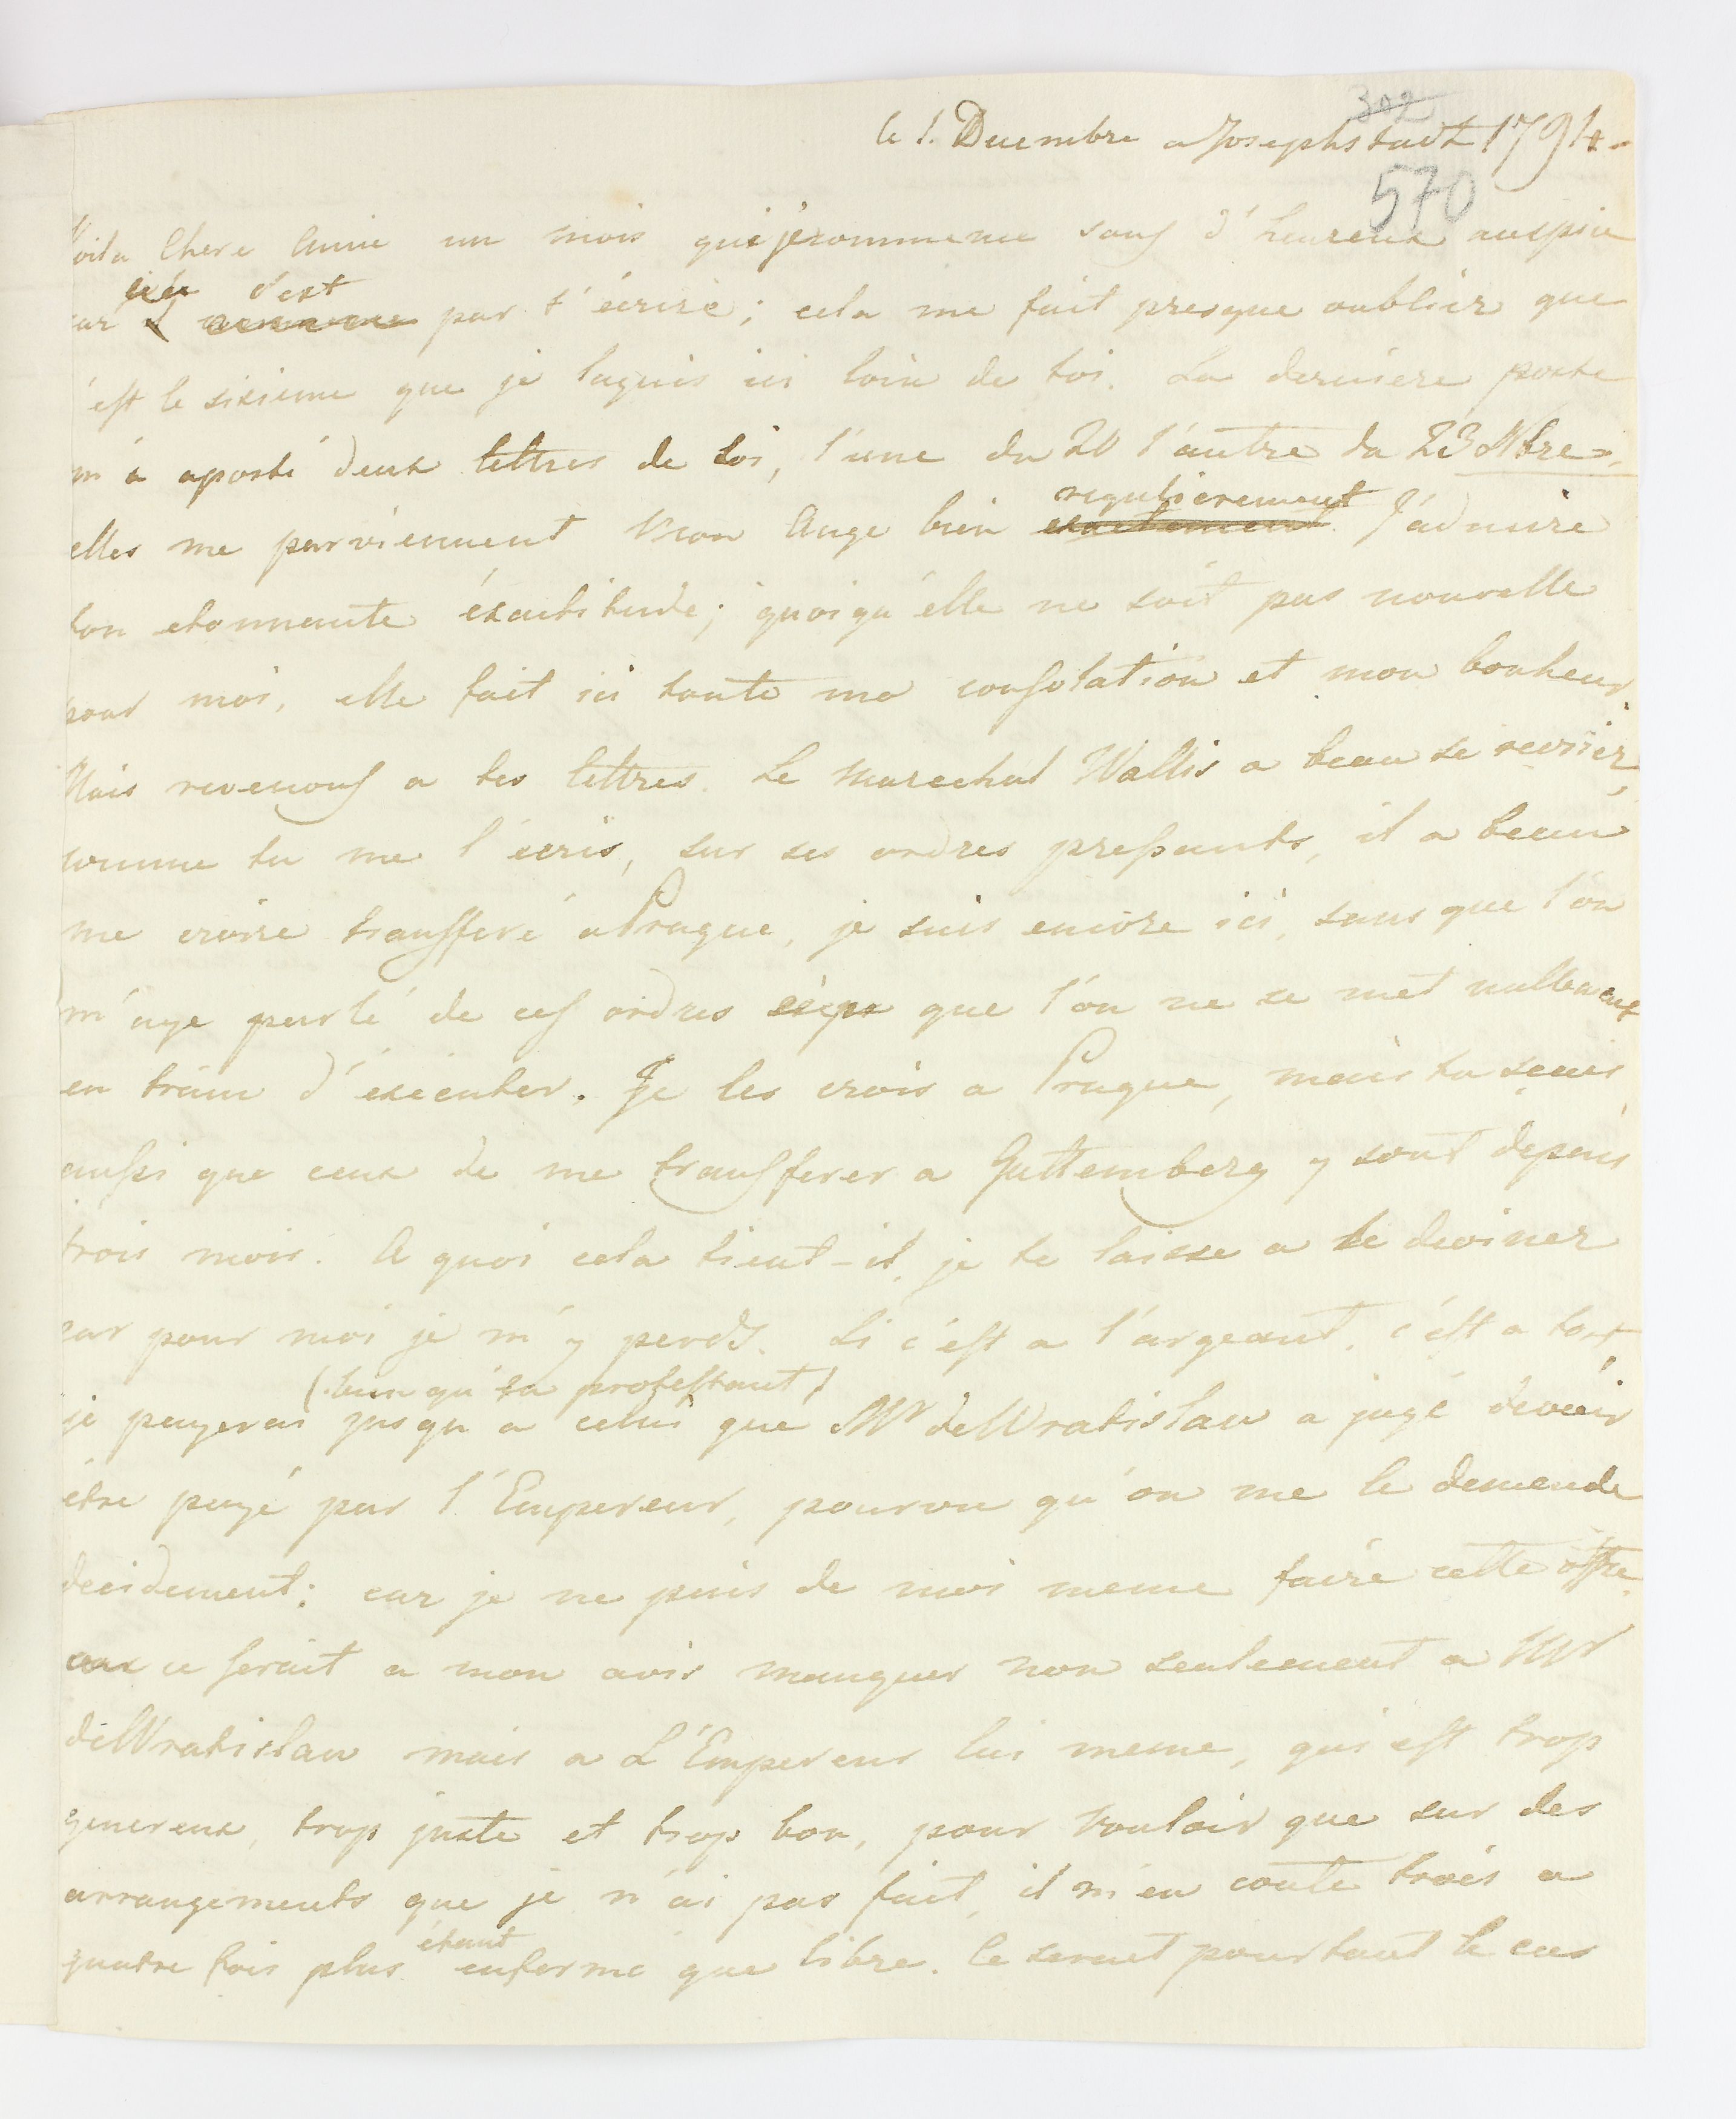 302
le 1. Decembre a Josephstadt 1794.
570
Voila Chere Amie un mois que je commence sous d'heureux auspice
c'est
car par t'écrire; cela me fait presque oublier que
c'est le sixieme que je laguis ici loin de toi. La derniere poste
m'a aporté deux lettres de toi, l'une du 20 l'autre du 23 Nbre.
regulierement
elles me parviennent Mon Ange bien exactement. J'admire
ton etonnente éxactitude; quoiqu'elle ne soit pas nouvelle
pour moi, elle fait ici toute ma consolation et mon bonheur.
Mais revenons a tes lettres. Le Marechal Wallis a beau se recrier,
comme tu me l'écris, sur ses ordres pressants, il a beau
me croire transferé a Prague, je suis encore ici, sans que l'on
m'aye parlé de ces ordres que l'on ne se met nullement
en train d'éxécuter. Je les crois a Prague, mais tu sçais
aussi que ceux de me transferer a Guttemberg y sont depuis
trois mois. A quoi cela tient-il, je te laisse a le deviner
car pour moi je m'y perds. Si c'est a l'argeant, c'est a tort,
(bien qu'en protestant)
je payerai jusqu'a celui que Mr de Wratislau a jugé devoir
étre payé par l'Empereur, pourvu qu'on me le demende
decidement: car je ne puis de moi meme faire cette offre,
car ce serait a mon avis manquer non seulement a Mr
de Wratislau mais a L'Empereur lui meme, qui est trop
genereux, trop juste et trop bon, pour vouloir que sur des
arrangements que je n'ai pas fait, il m'en coute trois a
étant
quatre fois plus enfermé que libre. Ce serait pourtant le cas